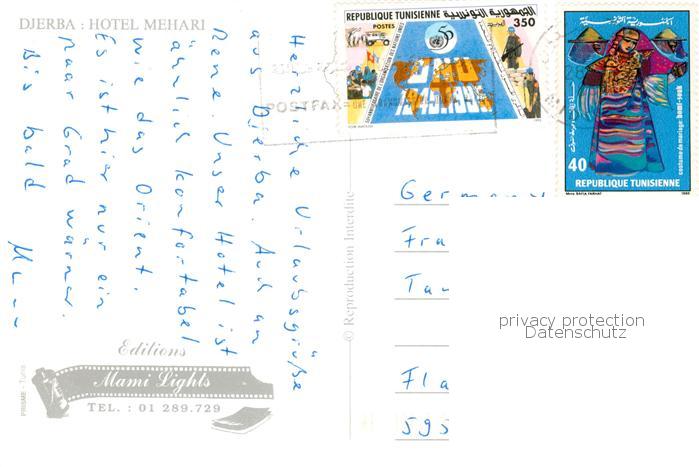 DJERBA : HOTEL MEHARI
Herzliche Urlaubsgrüße
aus Djerba. Auch an
Rene. Unser Hotel ist
ähnlich komfortabel
wie das Orient.
Es ist hier nur ein
Paar Grad wärmer.
Bis bald
REPUBLIQUE TUNISIENNE الجمهورية التونسية
POSTES البريد 350
50
الجمهورية التونسية
40
costume de mariage: beni-souk
REPUBLIQUE TUNISIENNE
© Reproduction Interdite
Germany
Fra
Tau
Fla
595
privacy protection
Datenschutz
Editions
Mami Lights
TEL. : 01 289.729
PRISME - Tunis